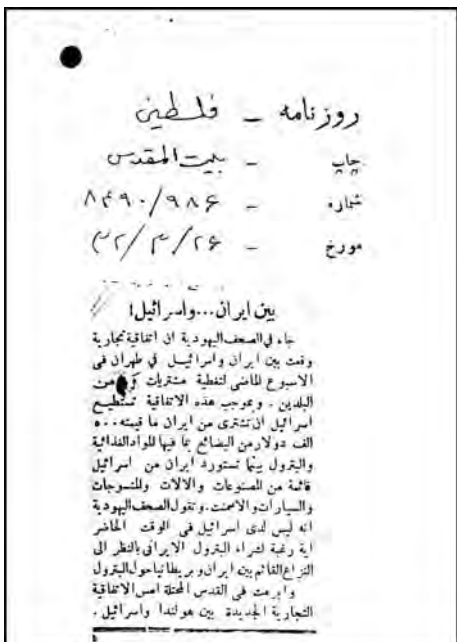 روزنامه - فلسطین
چاپ - بیت المقدس
شماره - ۸۴۹۰/۹۸۶
مورخ - ۳۲/۳/۲۶
بين ايران...واسرائيل!
جاء في الصحف اليهودية ان اتفاقية تجارية
وقعت بين ايران واسرائيل في طهران في
الاسبوع الماضي لتغطية مشتريات من
البلدين . وبموجب هذه الاتفاقية تستطيع
اسرائيل ان تشترى من ايران ما قيمته
الف دولار من البضائع بما فيها المواد الغذائية
والبترول بينما تستورد ايران من اسرائيل
قائمة من المصنوعات والالات والمنسوجات
والسيارات والاسمنت. وتقول الصحف اليهودية
انه ليس لدى اسرائيل في الوقت الحاضر
اية رغبة لشراء البترول الايراني بالنظر الى
النزاع القائم بين ايران وبريطانيا حول البترول
وابرمت في القدس المحتلة امس الاتفاقية
التجارية الجديدة بين هولندا واسرائيل .